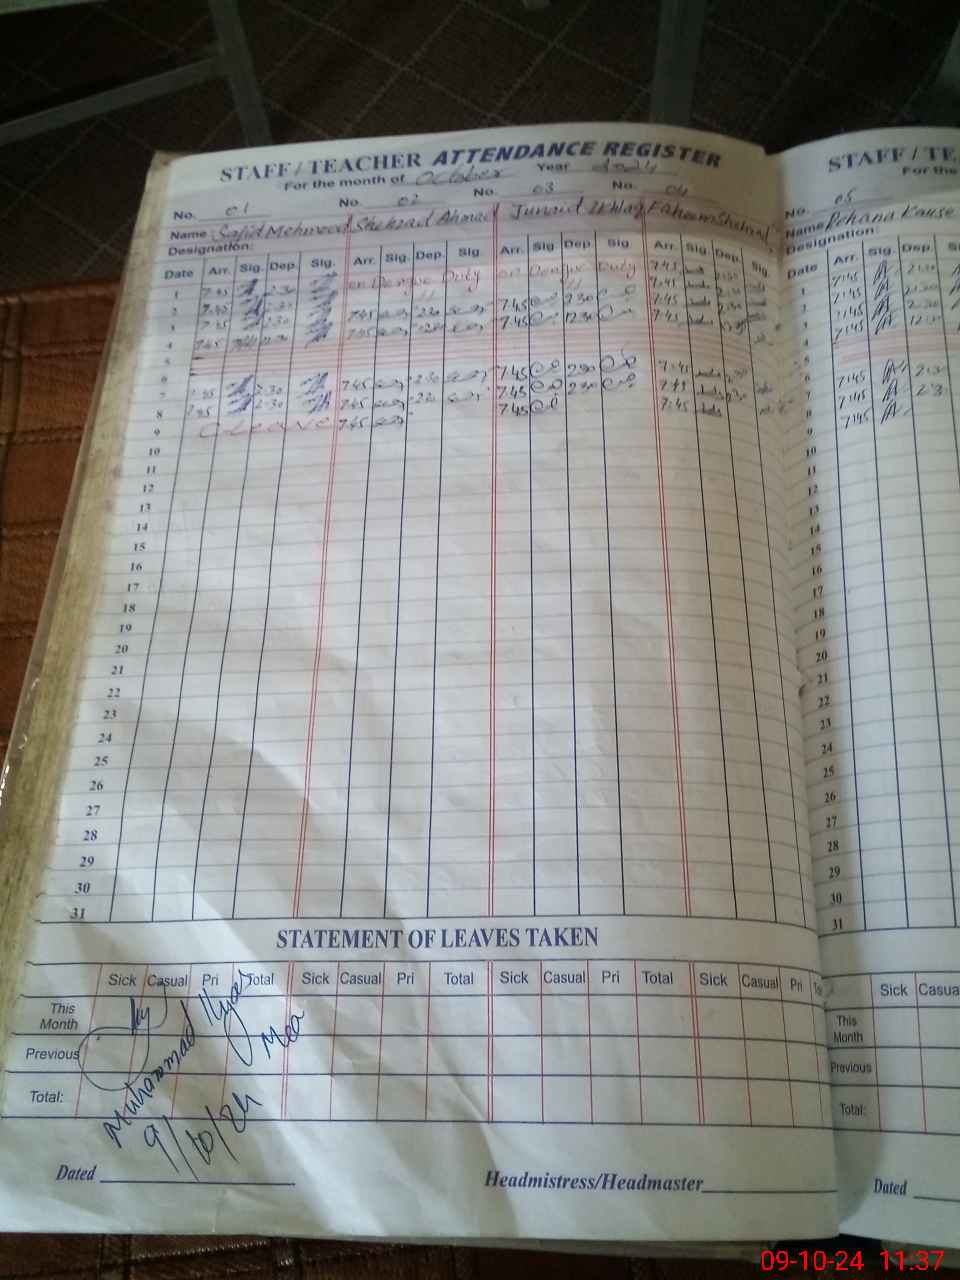 STAFF / TEACHER ATTENDANCE REGISTER
For the month of October Year 2024
No. 01 No. 02 No. 03 No. 04
Name Sajid Mehmood Shehzad Ahmad Junaid Ikhlaq Faheem
Designation:
Date Arr. Sig. Dep. Sig. Arr. Sig. Dep. Sig. Arr. Sig. Dep Sig. Arr. Sig. Dep. Sig.
1 7:45 2:30 on Dengue Duty on Dengue Duty 7:45 2:30
2 7:45 2:30 7:45
3 7:45 2:30 7:45 2:30 7:45 2:30 7:45 2:30
4 7:45 12:30 7:45 12:30 7:45 12:30 7:45
5
6
7 7:45 2:30 7:45 2:30 7:45 2:30 7:45
8 7:45 2:30 7:45 2:30 7:45 2:30 7:45 2:30
9 C Leave 7:45 7:45 7:45
10
11
12
13
14
15
16
17
18
19
20
21
22
23
24
25
26
27
28
29
30
31
STATEMENT OF LEAVES TAKEN
Sick Casual Pri Total Sick Casual Pri Total Sick Casual Pri Total Sick Casual Pri
This Month
Previous
Total:
Muhammad Ilyas
Mea
9/10/24
Dated Headmistress/Headmaster
STAFF / TE
For the
No. 05
Name Rehana Kause
Designation:
Date Arr. Sig. Dep.
1 7:45 2:30
2 7:45 2:30
3 7:45 2:30
4 7:45 12:30
5
6
7 7:45 2:30
8 7:45 2:3
9 7:45
10
11
12
13
14
15
16
17
18
19
20
21
22
23
24
25
26
27
28
29
30
31
Sick Casua
This Month
Previous
Total:
Dated
09-10-24 11:37